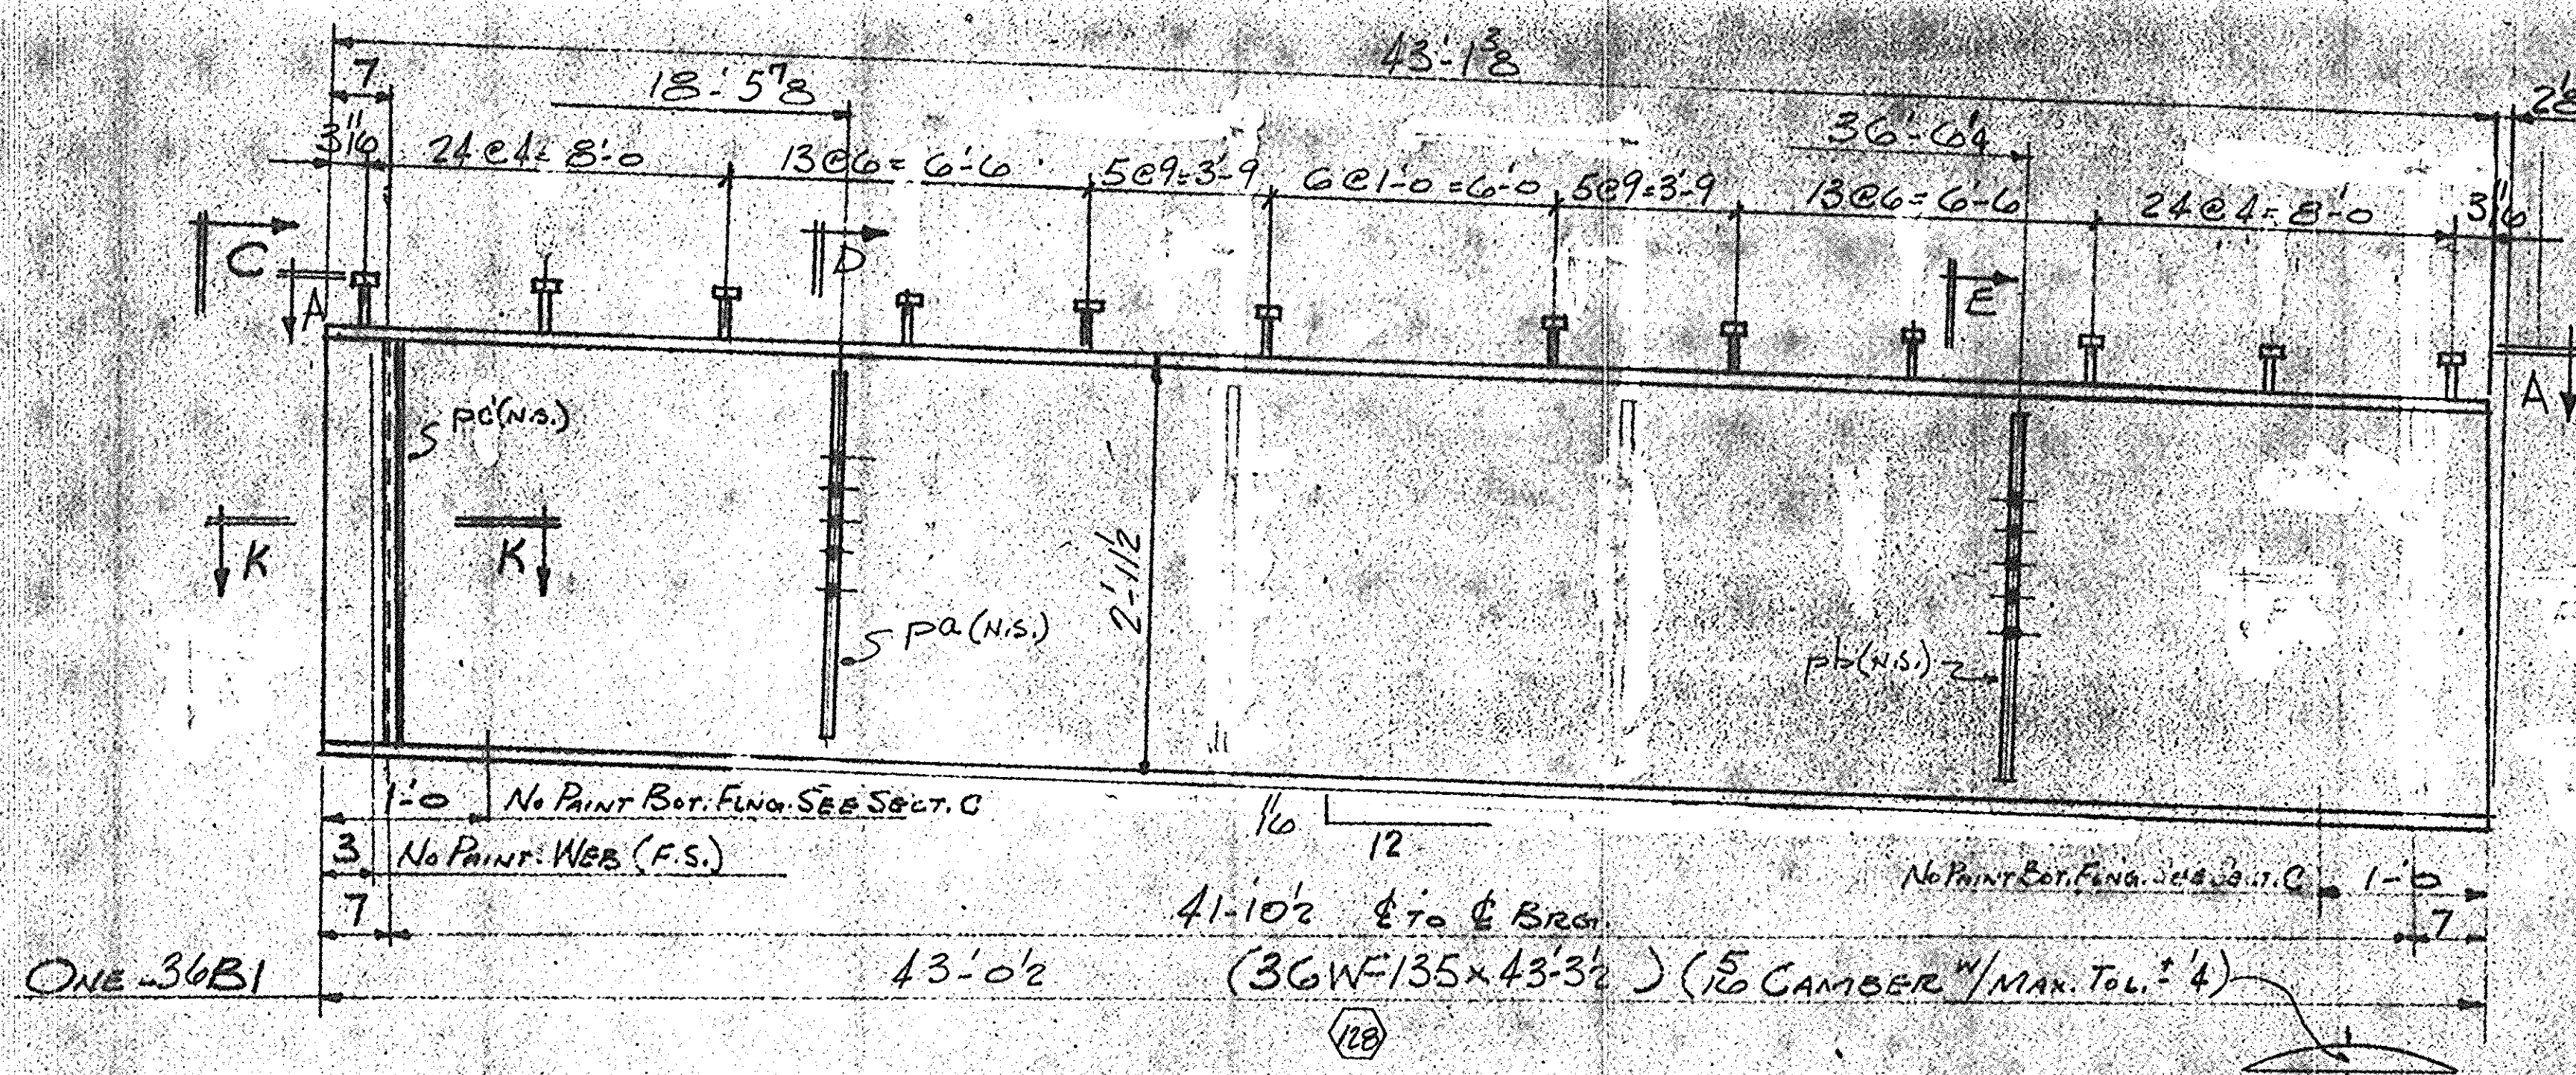 43'-1 3/8
7
18'-5 7/8
2 1/8
36'-6 1/4
3 1/16
24@4=8'-0
13@6=6'-6
5@9=3'-9
6@1'-0=6'-0
5@9=3'-9
13@6=6'-6
24@4=8'-0
3 1/16
C
A
D
E
A
pc'(N.S.)
K
K
2'-11 1/2
pa(N.S.)
pb(N.S.)
1'-0 NO PAINT BOT. FLNG. SEE SECT. C
1/16
12
3 NO PAINT. WEB (F.S.)
NO PAINT BOT. FLNG. SEE SECT. C 1'-0
7
41'-10 1/2 ℄ TO ℄ BRG.
7
ONE -36B1
43'-0 1/2
(36WF135x43'-3 1/2) (5/16 CAMBER W/MAX. TOL. ± 1/4)
128